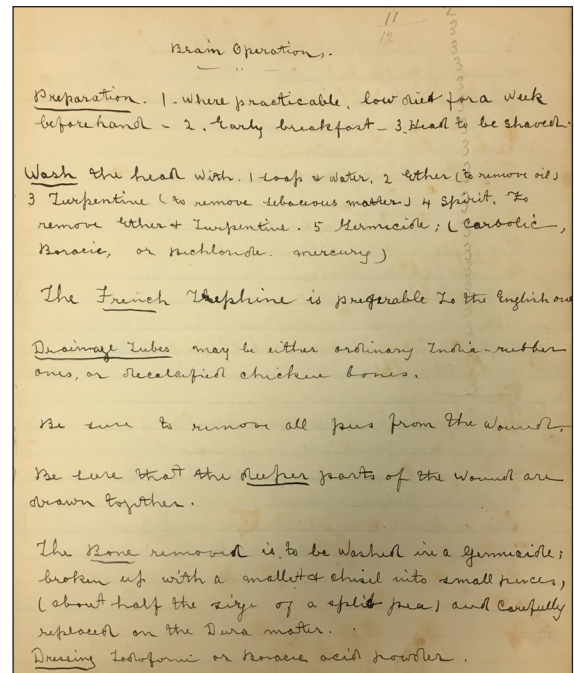 11
12
2
3
3
3
3
Brain Operations.
Preparation. 1. Where practicable, low diet for a week
beforehand - 2. Early breakfast - 3. Head to be shaved.
Wash the head with. 1 soap & water. 2 Ether (to remove oil)
3 Turpentine (to remove sebaceous matter) 4 Spirit. To
remove Ether & Turpentine. 5 Germicide; (Carbolic,
Boracic, or Bichloride. mercury)
The French Trephine is preferable to the English one
Drainage Tubes may be either ordinary India-rubber
ones, or decalcified chicken bones.
Be sure to remove all pus from the wound.
Be sure that the deeper parts of the wound are
drawn together.
The Bone removed is to be washed in a Germicide;
broken up with a mallet & chisel into small pieces,
(about half the size of a split pea) and carefully
replaced on the Dura mater.
Dressing Iodoform or Boracic acid powder.